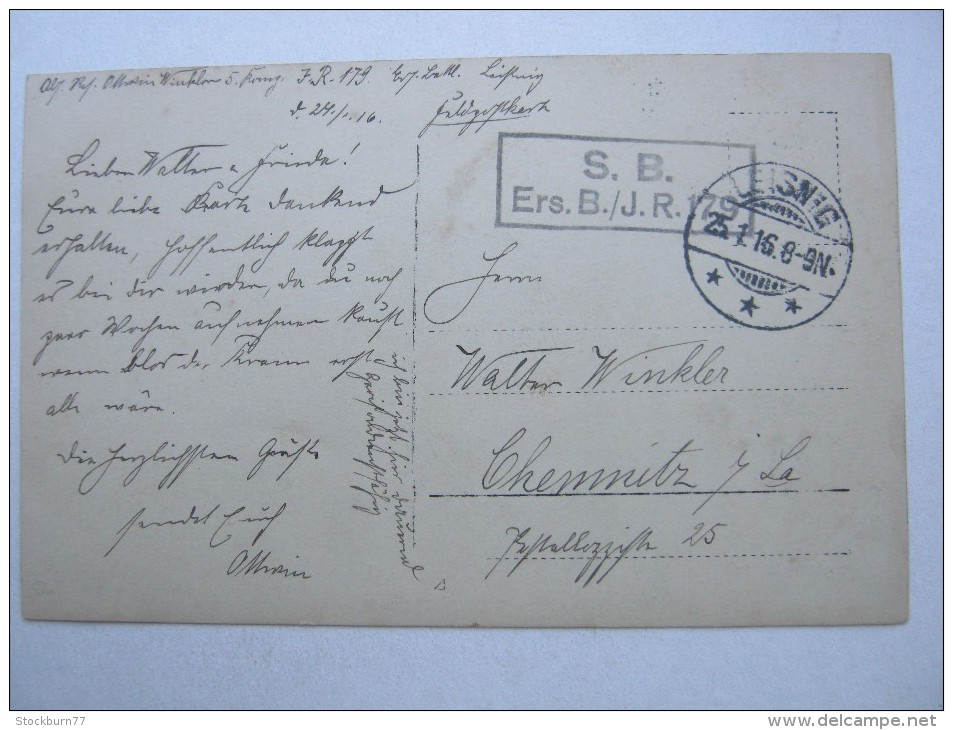 Ots. Rs. Ottwin Winkler 5. Komp. J. R. 179. Ers. Batl. Leisnig
d. 24./1.16.
Feldpostkarte
Lieber Walter u Frieda!
Eure liebe Karte dankend
erhalten, hoffentlich klappt
es bei dir wieder, da du noch
paar Wochen aufnehmen kannst
wenn blos der Kram erst
alle wäre.
Die herzlichsten Grüße
sendet Euch
Ottwin
ich bin jetzt hier dauernd
S. B.
Ers. B./J. R. 179
LEISNIG
25.1.16.8-9N.
Herrn
Walter Winkler
Chemnitz i/Sa
Pestalozzistr 25
Stockburn77
www.delcampe.net